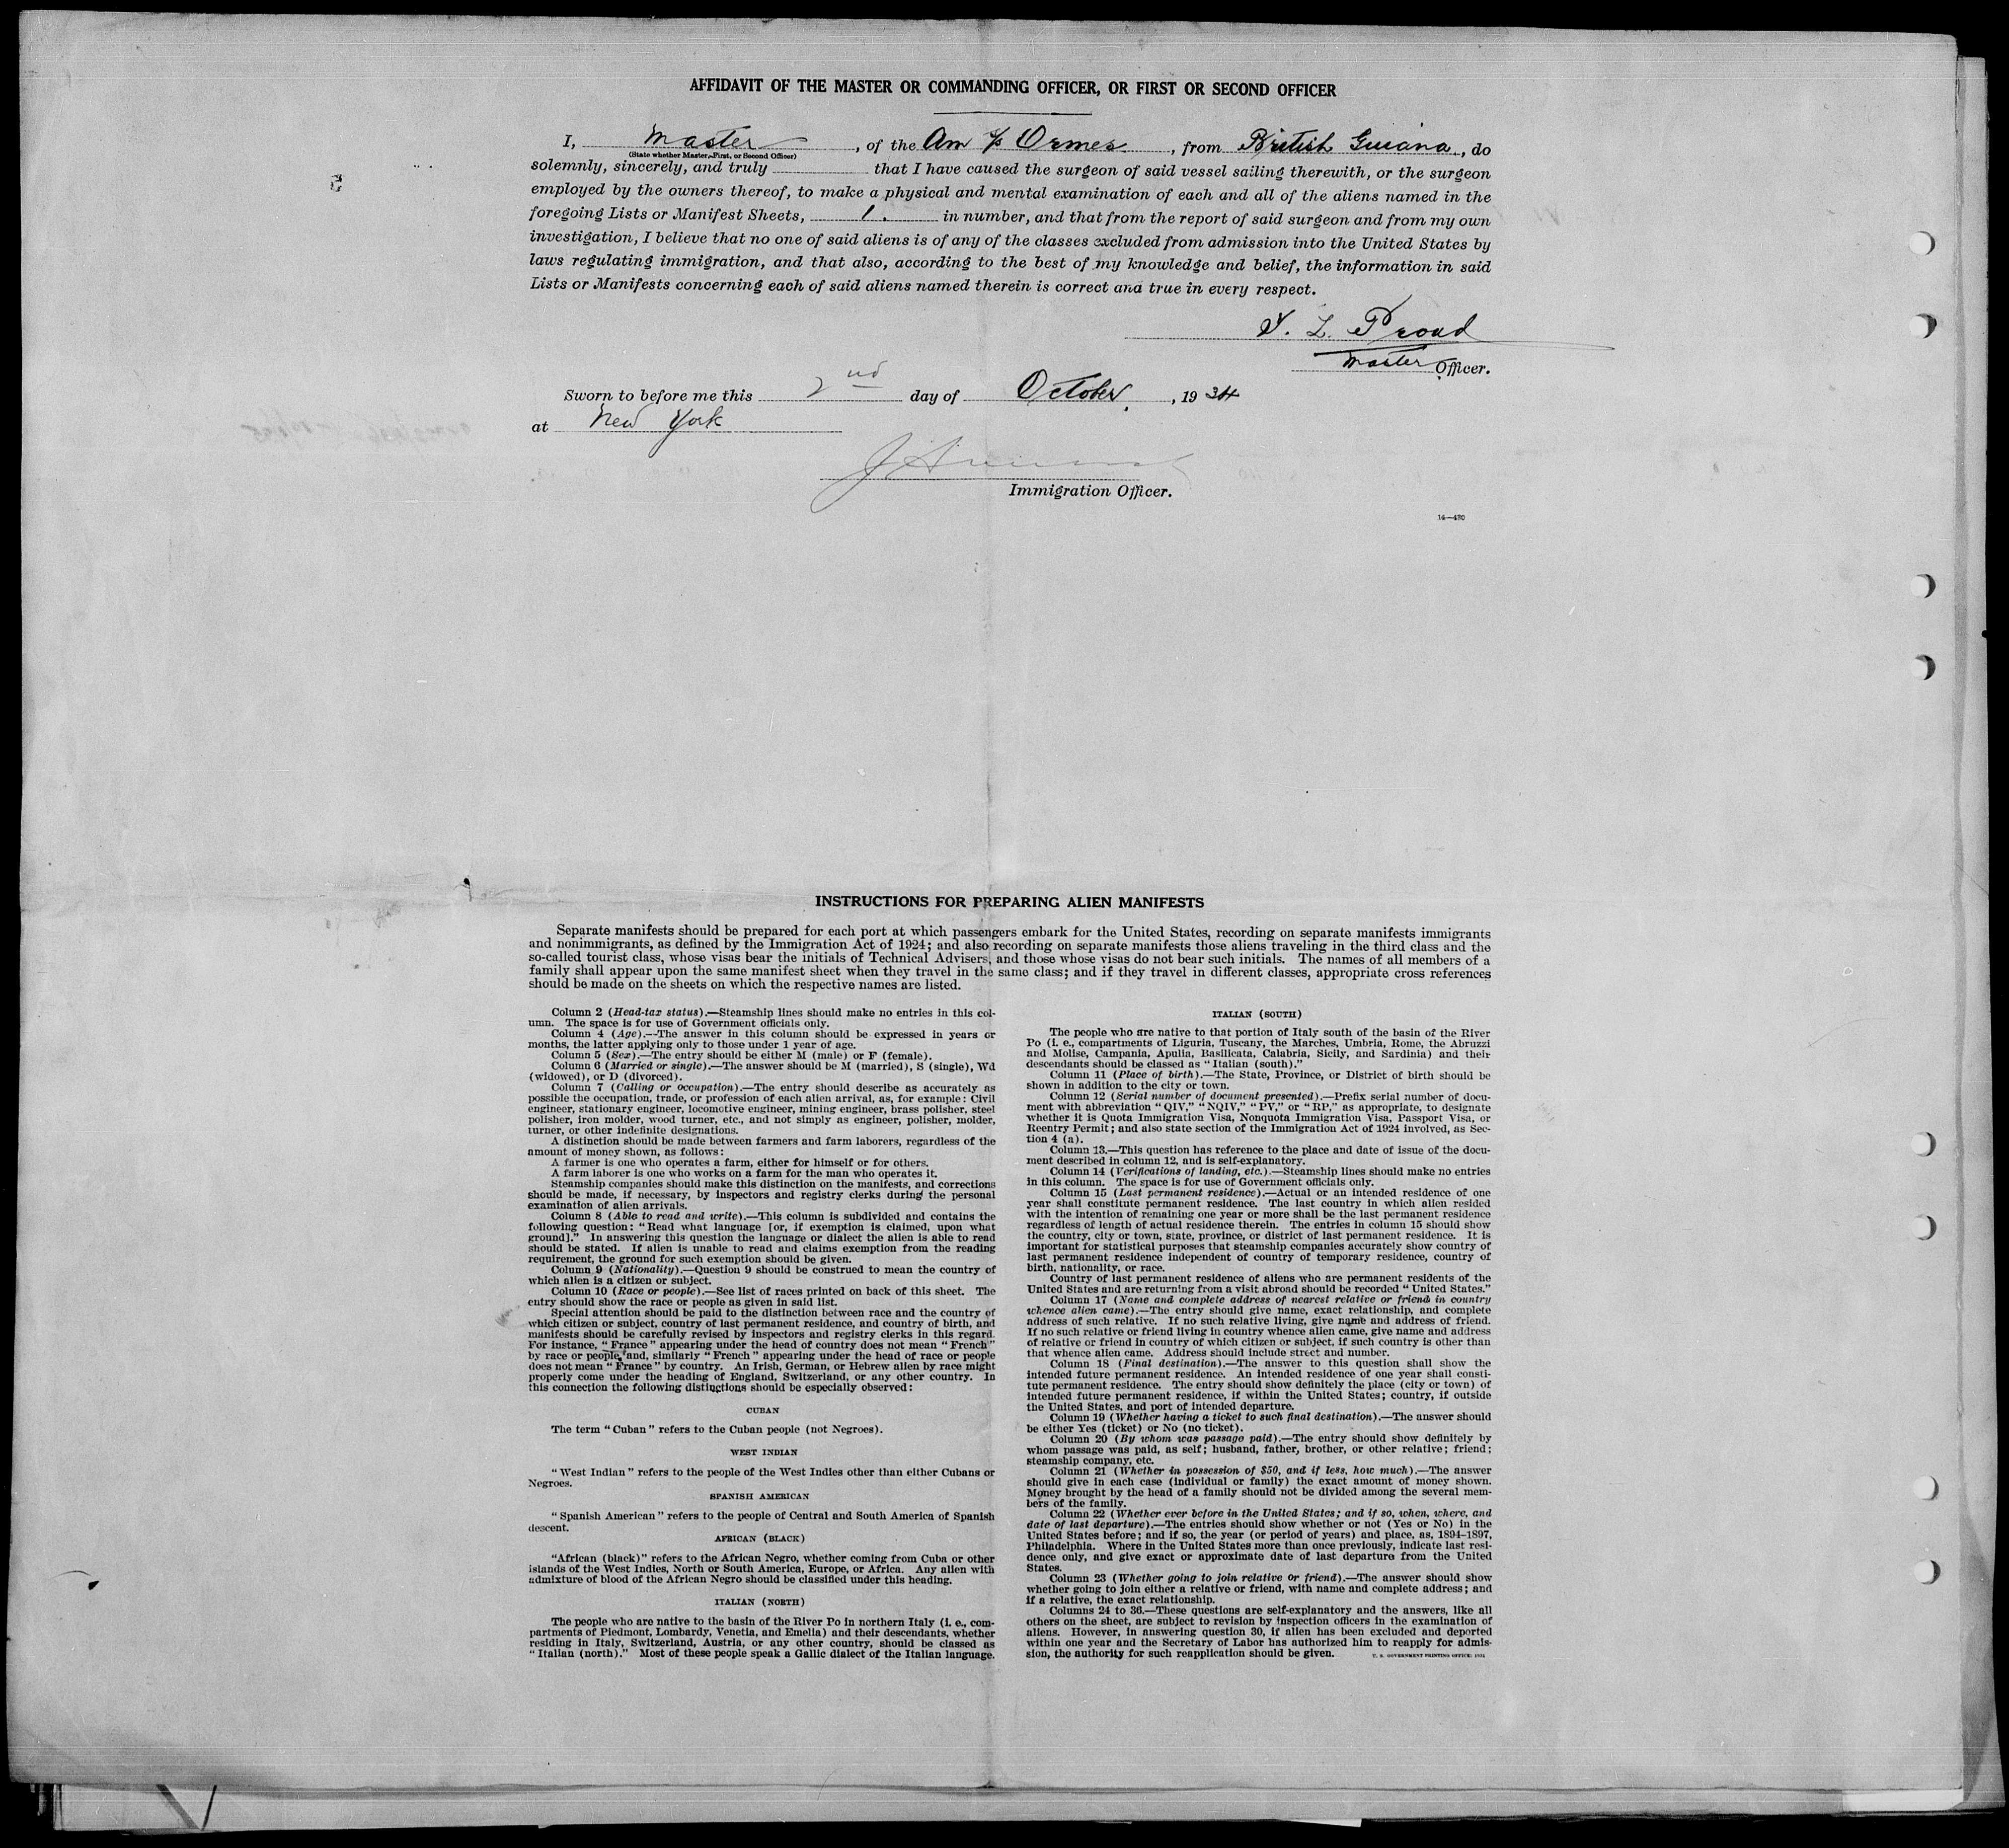 AFFIDAVIT OF THE MASTER OR COMMANDING OFFICER, OR FIRST OR SECOND OFFICER
I, Master, of the Am S/S Ormes, from British Guiana, do
(State whether Master, First, or Second Officer)
solemnly, sincerely, and truly that I have caused the surgeon of said vessel sailing therewith, or the surgeon
employed by the owners thereof, to make a physical and mental examination of each and all of the aliens named in the
foregoing Lists or Manifest Sheets, 1. in number, and that from the report of said surgeon and from my own
investigation, I believe that no one of said aliens is of any of the classes excluded from admission into the United States by
laws regulating immigration, and that also, according to the best of my knowledge and belief, the information in said
Lists or Manifests concerning each of said aliens named therein is correct and true in every respect.
L. Proad
Master Officer.
Sworn to before me this 2nd day of October, 1934
at New York
Immigration Officer.
14—430
INSTRUCTIONS FOR PREPARING ALIEN MANIFESTS
Separate manifests should be prepared for each port at which passengers embark for the United States, recording on separate manifests immigrants
and nonimmigrants, as defined by the Immigration Act of 1924; and also recording on separate manifests those aliens traveling in the third class and the
so-called tourist class, whose visas bear the initials of Technical Advisers, and those whose visas do not bear such initials. The names of all members of a
family shall appear upon the same manifest sheet when they travel in the same class; and if they travel in different classes, appropriate cross references
should be made on the sheets on which the respective names are listed.
Column 2 (Head-tax status).—Steamship lines should make no entries in this col-
umn. The space is for use of Government officials only.
Column 4 (Age).—The answer in this column should be expressed in years or
months, the latter applying only to those under 1 year of age.
Column 5 (Sex).—The entry should be either M (male) or F (female).
Column 6 (Married or single).—The answer should be M (married), S (single), Wd
(widowed), or D (divorced).
Column 7 (Calling or occupation).—The entry should describe as accurately as
possible the occupation, trade, or profession of each alien arrival, as, for example: Civil
engineer, stationary engineer, locomotive engineer, mining engineer, brass polisher, steel
polisher, iron molder, wood turner, etc., and not simply as engineer, polisher, molder,
turner, or other indefinite designations.
A distinction should be made between farmers and farm laborers, regardless of the
amount of money shown, as follows:
A farmer is one who operates a farm, either for himself or for others.
A farm laborer is one who works on a farm for the man who operates it.
Steamship companies should make this distinction on the manifests, and corrections
should be made, if necessary, by inspectors and registry clerks during the personal
examination of alien arrivals.
Column 8 (Able to read and write).—This column is subdivided and contains the
following question: "Read what language [or, if exemption is claimed, upon what
ground]." In answering this question the language or dialect the alien is able to read
should be stated. If alien is unable to read and claims exemption from the reading
requirement, the ground for such exemption should be given.
Column 9 (Nationality).—Question 9 should be construed to mean the country of
which alien is a citizen or subject.
Column 10 (Race or people).—See list of races printed on back of this sheet. The
entry should show the race or people as given in said list.
Special attention should be paid to the distinction between race and the country of
which citizen or subject, country of last permanent residence, and country of birth, and
manifests should be carefully revised by inspectors and registry clerks in this regard.
For instance, "France" appearing under the head of country does not mean "French"
by race or people, and, similarly "French" appearing under the head of race or people
does not mean "France" by country. An Irish, German, or Hebrew alien by race might
properly come under the heading of England, Switzerland, or any other country. In
this connection the following distinctions should be especially observed:
CUBAN
The term "Cuban" refers to the Cuban people (not Negroes).
WEST INDIAN
"West Indian" refers to the people of the West Indies other than either Cubans or
Negroes.
SPANISH AMERICAN
"Spanish American" refers to the people of Central and South America of Spanish
descent.
AFRICAN (BLACK)
"African (black)" refers to the African Negro, whether coming from Cuba or other
islands of the West Indies, North or South America, Europe, or Africa. Any alien with
admixture of blood of the African Negro should be classified under this heading.
ITALIAN (NORTH)
The people who are native to the basin of the River Po in northern Italy (i. e., com-
partments of Piedmont, Lombardy, Venetia, and Emelia) and their descendants, whether
residing in Italy, Switzerland, Austria, or any other country, should be classed as
"Italian (north)." Most of these people speak a Gallic dialect of the Italian language.
ITALIAN (SOUTH)
The people who are native to that portion of Italy south of the basin of the River
Po (i. e., compartments of Liguria, Tuscany, the Marches, Umbria, Rome, the Abruzzi
and Molise, Campania, Apulia, Basilicata, Calabria, Sicily, and Sardinia) and their
descendants should be classed as "Italian (south)."
Column 11 (Place of birth).—The State, Province, or District of birth should be
shown in addition to the city or town.
Column 12 (Serial number of document presented).—Prefix serial number of docu-
ment with abbreviation "QIV," "NQIV," "PV," or "RP," as appropriate, to designate
whether it is Quota Immigration Visa, Nonquota Immigration Visa, Passport Visa, or
Reentry Permit; and also state section of the Immigration Act of 1924 involved, as Sec-
tion 4 (a).
Column 13.—This question has reference to the place and date of issue of the docu-
ment described in column 12, and is self-explanatory.
Column 14 (Verifications of landing, etc.).—Steamship lines should make no entries
in this column. The space is for use of Government officials only.
Column 15 (Last permanent residence).—Actual or an intended residence of one
year shall constitute permanent residence. The last country in which alien resided
with the intention of remaining one year or more shall be the last permanent residence
regardless of length of actual residence therein. The entries in column 15 should show
the country, city or town, state, province, or district of last permanent residence. It is
important for statistical purposes that steamship companies accurately show country of
last permanent residence independent of country of temporary residence, country of
birth, nationality, or race.
Country of last permanent residence of aliens who are permanent residents of the
United States and are returning from a visit abroad should be recorded "United States."
Column 17 (Name and complete address of nearest relative or friend in country
whence alien came).—The entry should give name, exact relationship, and complete
address of such relative. If no such relative living, give name and address of friend.
If no such relative or friend living in country whence alien came, give name and address
of relative or friend in country of which citizen or subject, if such country is other than
that whence alien came. Address should include street and number.
Column 18 (Final destination).—The answer to this question shall show the
intended future permanent residence. An intended residence of one year shall consti-
tute permanent residence. The entry should show definitely the place (city or town) of
intended future permanent residence, if within the United States; country, if outside
the United States, and port of intended departure.
Column 19 (Whether having a ticket to such final destination).—The answer should
be either Yes (ticket) or No (no ticket).
Column 20 (By whom was passage paid).—The entry should show definitely by
whom passage was paid, as self; husband, father, brother, or other relative; friend;
steamship company, etc.
Column 21 (Whether in possession of $50, and if less, how much).—The answer
should give in each case (individual or family) the exact amount of money shown.
Money brought by the head of a family should not be divided among the several mem-
bers of the family.
Column 22 (Whether ever before in the United States; and if so, when, where, and
date of last departure).—The entries should show whether or not (Yes or No) in the
United States before; and if so, the year (or period of years) and place, as, 1894–1897,
Philadelphia. Where in the United States more than once previously, indicate last resi-
dence only, and give exact or approximate date of last departure from the United
States.
Column 23 (Whether going to join relative or friend).—The answer should show
whether going to join either a relative or friend, with name and complete address; and
if a relative, the exact relationship.
Columns 24 to 36.—These questions are self-explanatory and the answers, like all
others on the sheet, are subject to revision by inspection officers in the examination of
aliens. However, in answering question 30, if alien has been excluded and deported
within one year and the Secretary of Labor has authorized him to reapply for admis-
sion, the authority for such reapplication should be given.
U. S. GOVERNMENT PRINTING OFFICE: